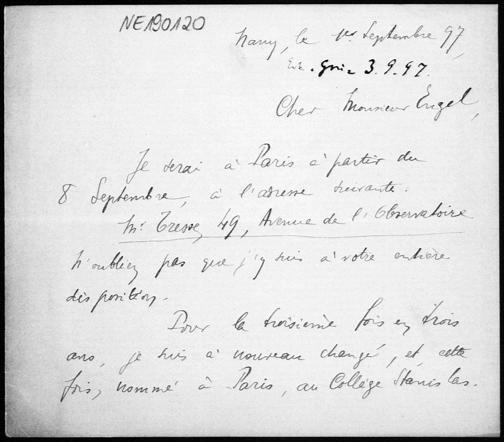 NE190120
Nancy, le 1er Septembre 97,
3.9.97.
Cher Monsieur Engel,
Je serai à Paris à partir du
8 Septembre, à l'adresse suivante:
Mr Tresse, 49, Avenue de l'Observatoire
N'oubliez pas que j'y suis à votre entière
disposition.
Pour la troisième fois en trois
ans, je suis à nouveau changé, et cette
fois, nommé à Paris, au Collège Stanislas.